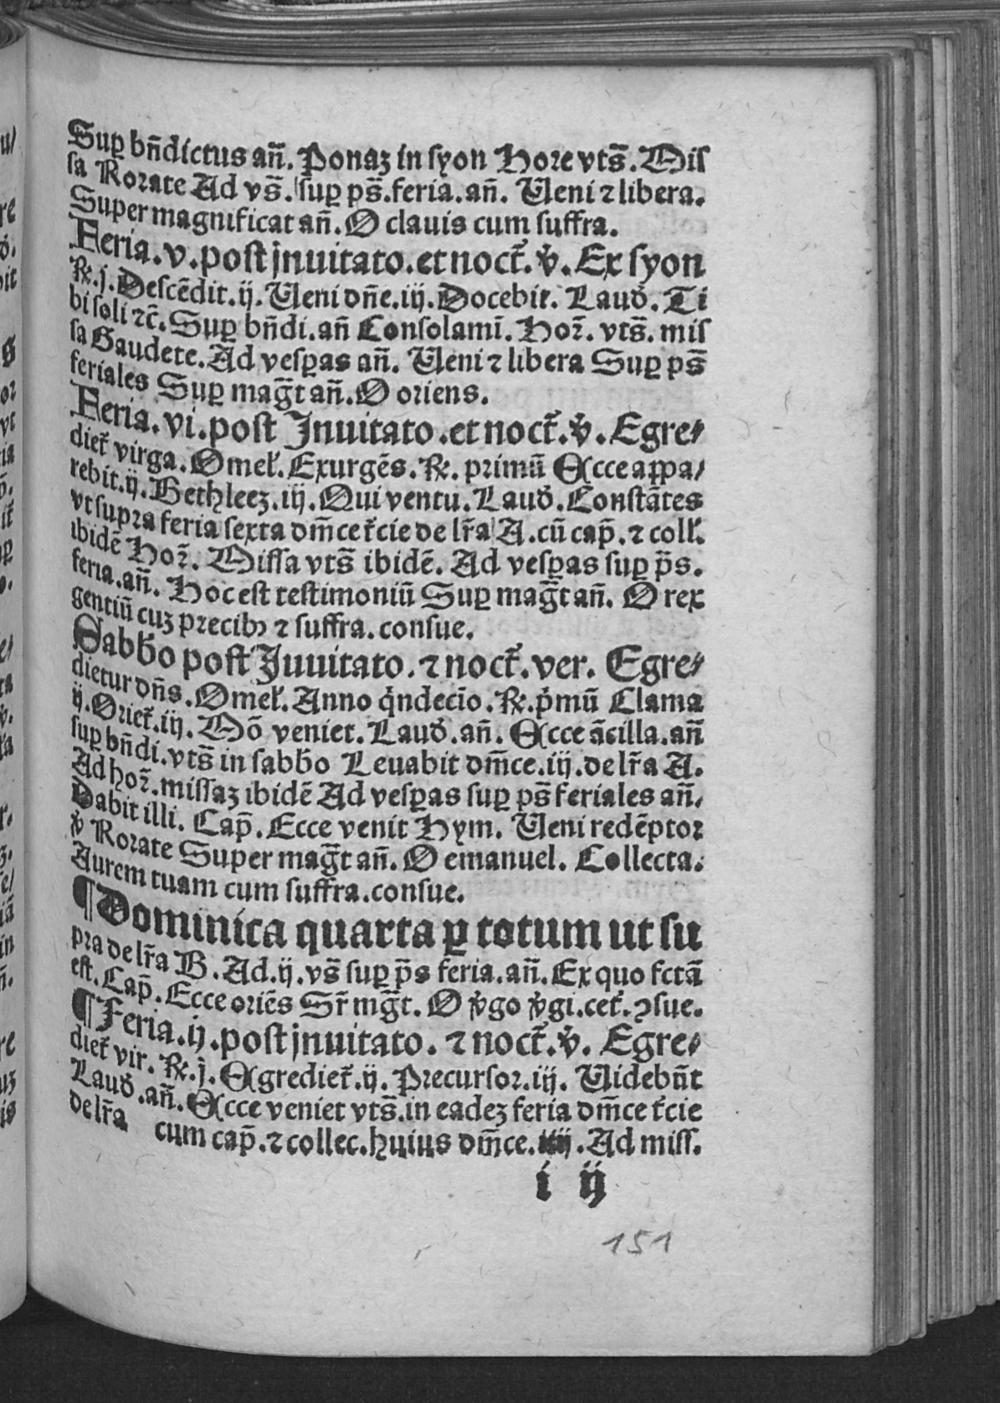 Suꝑ bn̄dictus an̄. Ponaꝫ in syon Hore vts̄. Mis
sa Rorate Ad vs̄. suꝑ ps̄. feria. an̄. Veni ⁊ libera.
Super magnificat an̄. O clauis cum suffra.
Feria. v. post jnuitato. et noct̄. v̄. Ex syon
℞. j. Descēdit. ij. Veni dn̄e. iij. Docebit. Laud̄. Ti
bi soli ⁊c̄. Suꝑ bn̄di. an̄ Consolamī. Hor̄. vts̄. mis
sa Gaudete. Ad vesꝑas an̄. Veni ⁊ libera Suꝑ ps̄
feriales Suꝑ mag̅t an̄. O oriens.
Feria. vi. post Inuitato. et noct̄. v̄. Egre⸗
diet̄ virga. Omel̄. Exurgēs. ℞. primū Ecce appa/
rebit. ij. Bethleeꝫ. iij. Qui ventu. Laud̄. Constātes
vt supra feria sexta dm̄ce t̄cie de lr̄a A. cū cap̄. ⁊ coll̄.
ibidē Hor̄. Missa vts̄ ibidē. Ad vesꝑas suꝑ p̄s.
feria. an̄. Hoc est testimoniū Suꝑ mag̅t an̄. O rex
gentiū cuꝫ precibꝰ ⁊ suffra. consue.
Sabb̄o post Juuitato. ⁊ noct̄. ver. Egre⸗
dietur dn̄s. Omel̄. Anno q̄ndecīo. ℞. p̄mū Clama
ij. Oriet̄. iij. Nō veniet. Laud̄. an̄. Ecce ācilla. an̄
suꝑ bn̄di. vts̄ in sabb̄o Levabit dm̄ce. iij. de lr̄a A.
Ad hor̄. missaꝫ ibidē Ad vesꝑas suꝑ ps̄ feriales an̄.
Dabit illi. Cap̄. Ecce venit Hym. Veni redēptor
v̄ Rorate Super mag̅t an̄. O emanuel. Collecta.
Aurem tuam cum suffra. consue.
¶Dominica quarta ꝑ totum ut su
pra de lr̄a B. Ad. ij. vs̄ suꝑ p̄s feria. an̄. Ex quo fctā
est. Cap̄. Ecce oriēs Sr̄ mg̅t. O v̄go v̄gi. cet̄. ꝯsue.
¶Feria. ij. post jnuitato. ⁊ noct̄. v̄. Egre⸗
diet̄ vir. ℞. j. Egrediet̄. ij. Precursor. iij. Videbn̄t
Laud̄. an̄. Ecce veniet vts̄. in eadeꝫ feria dm̄ce t̄cie
de lr̄a cum cap̄. ⁊ collec. huius dm̄ce. iiij. Ad miss.
i ij
151